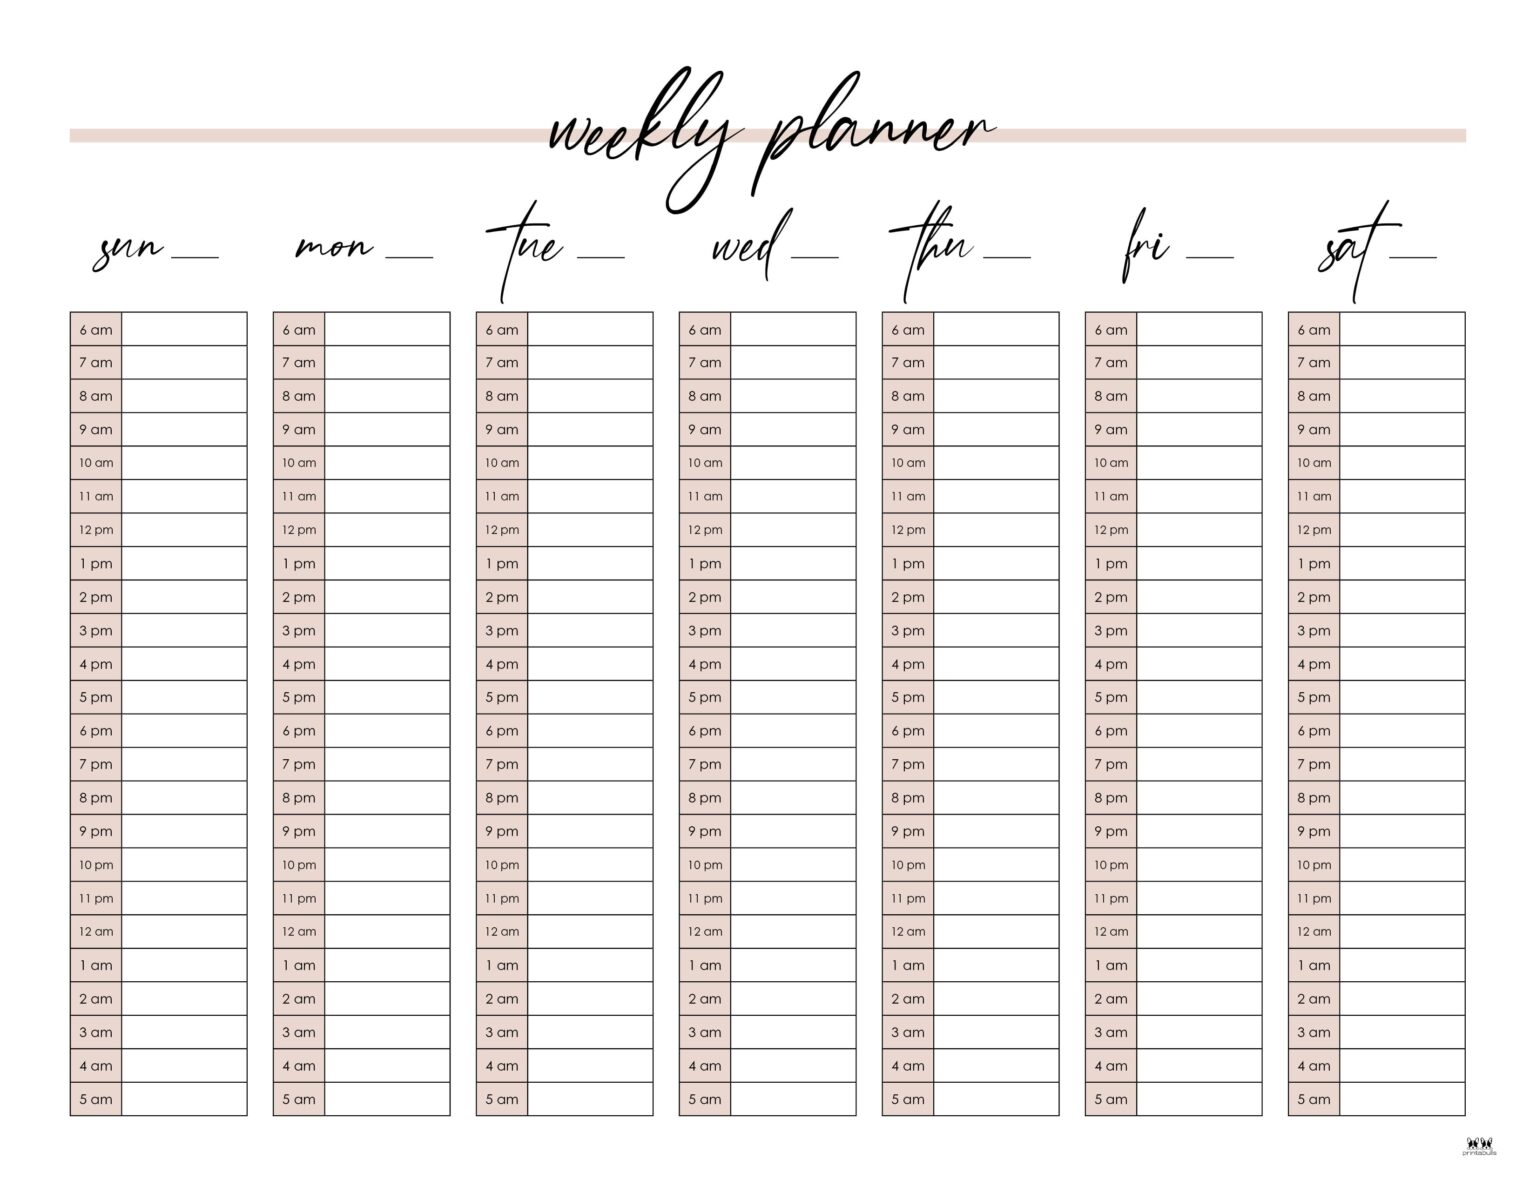 weekly planner
sun ___ mon ___ tue ___ wed ___ thu ___ fri ___ sat ___
6 am 6 am 6 am 6 am 6 am 6 am 6 am
7 am 7 am 7 am 7 am 7 am 7 am 7 am
8 am 8 am 8 am 8 am 8 am 8 am 8 am
9 am 9 am 9 am 9 am 9 am 9 am 9 am
10 am 10 am 10 am 10 am 10 am 10 am 10 am
11 am 11 am 11 am 11 am 11 am 11 am 11 am
12 pm 12 pm 12 pm 12 pm 12 pm 12 pm 12 pm
1 pm 1 pm 1 pm 1 pm 1 pm 1 pm 1 pm
2 pm 2 pm 2 pm 2 pm 2 pm 2 pm 2 pm
3 pm 3 pm 3 pm 3 pm 3 pm 3 pm 3 pm
4 pm 4 pm 4 pm 4 pm 4 pm 4 pm 4 pm
5 pm 5 pm 5 pm 5 pm 5 pm 5 pm 5 pm
6 pm 6 pm 6 pm 6 pm 6 pm 6 pm 6 pm
7 pm 7 pm 7 pm 7 pm 7 pm 7 pm 7 pm
8 pm 8 pm 8 pm 8 pm 8 pm 8 pm 8 pm
9 pm 9 pm 9 pm 9 pm 9 pm 9 pm 9 pm
10 pm 10 pm 10 pm 10 pm 10 pm 10 pm 10 pm
11 pm 11 pm 11 pm 11 pm 11 pm 11 pm 11 pm
12 am 12 am 12 am 12 am 12 am 12 am 12 am
1 am 1 am 1 am 1 am 1 am 1 am 1 am
2 am 2 am 2 am 2 am 2 am 2 am 2 am
3 am 3 am 3 am 3 am 3 am 3 am 3 am
4 am 4 am 4 am 4 am 4 am 4 am 4 am
5 am 5 am 5 am 5 am 5 am 5 am 5 am
printabulls